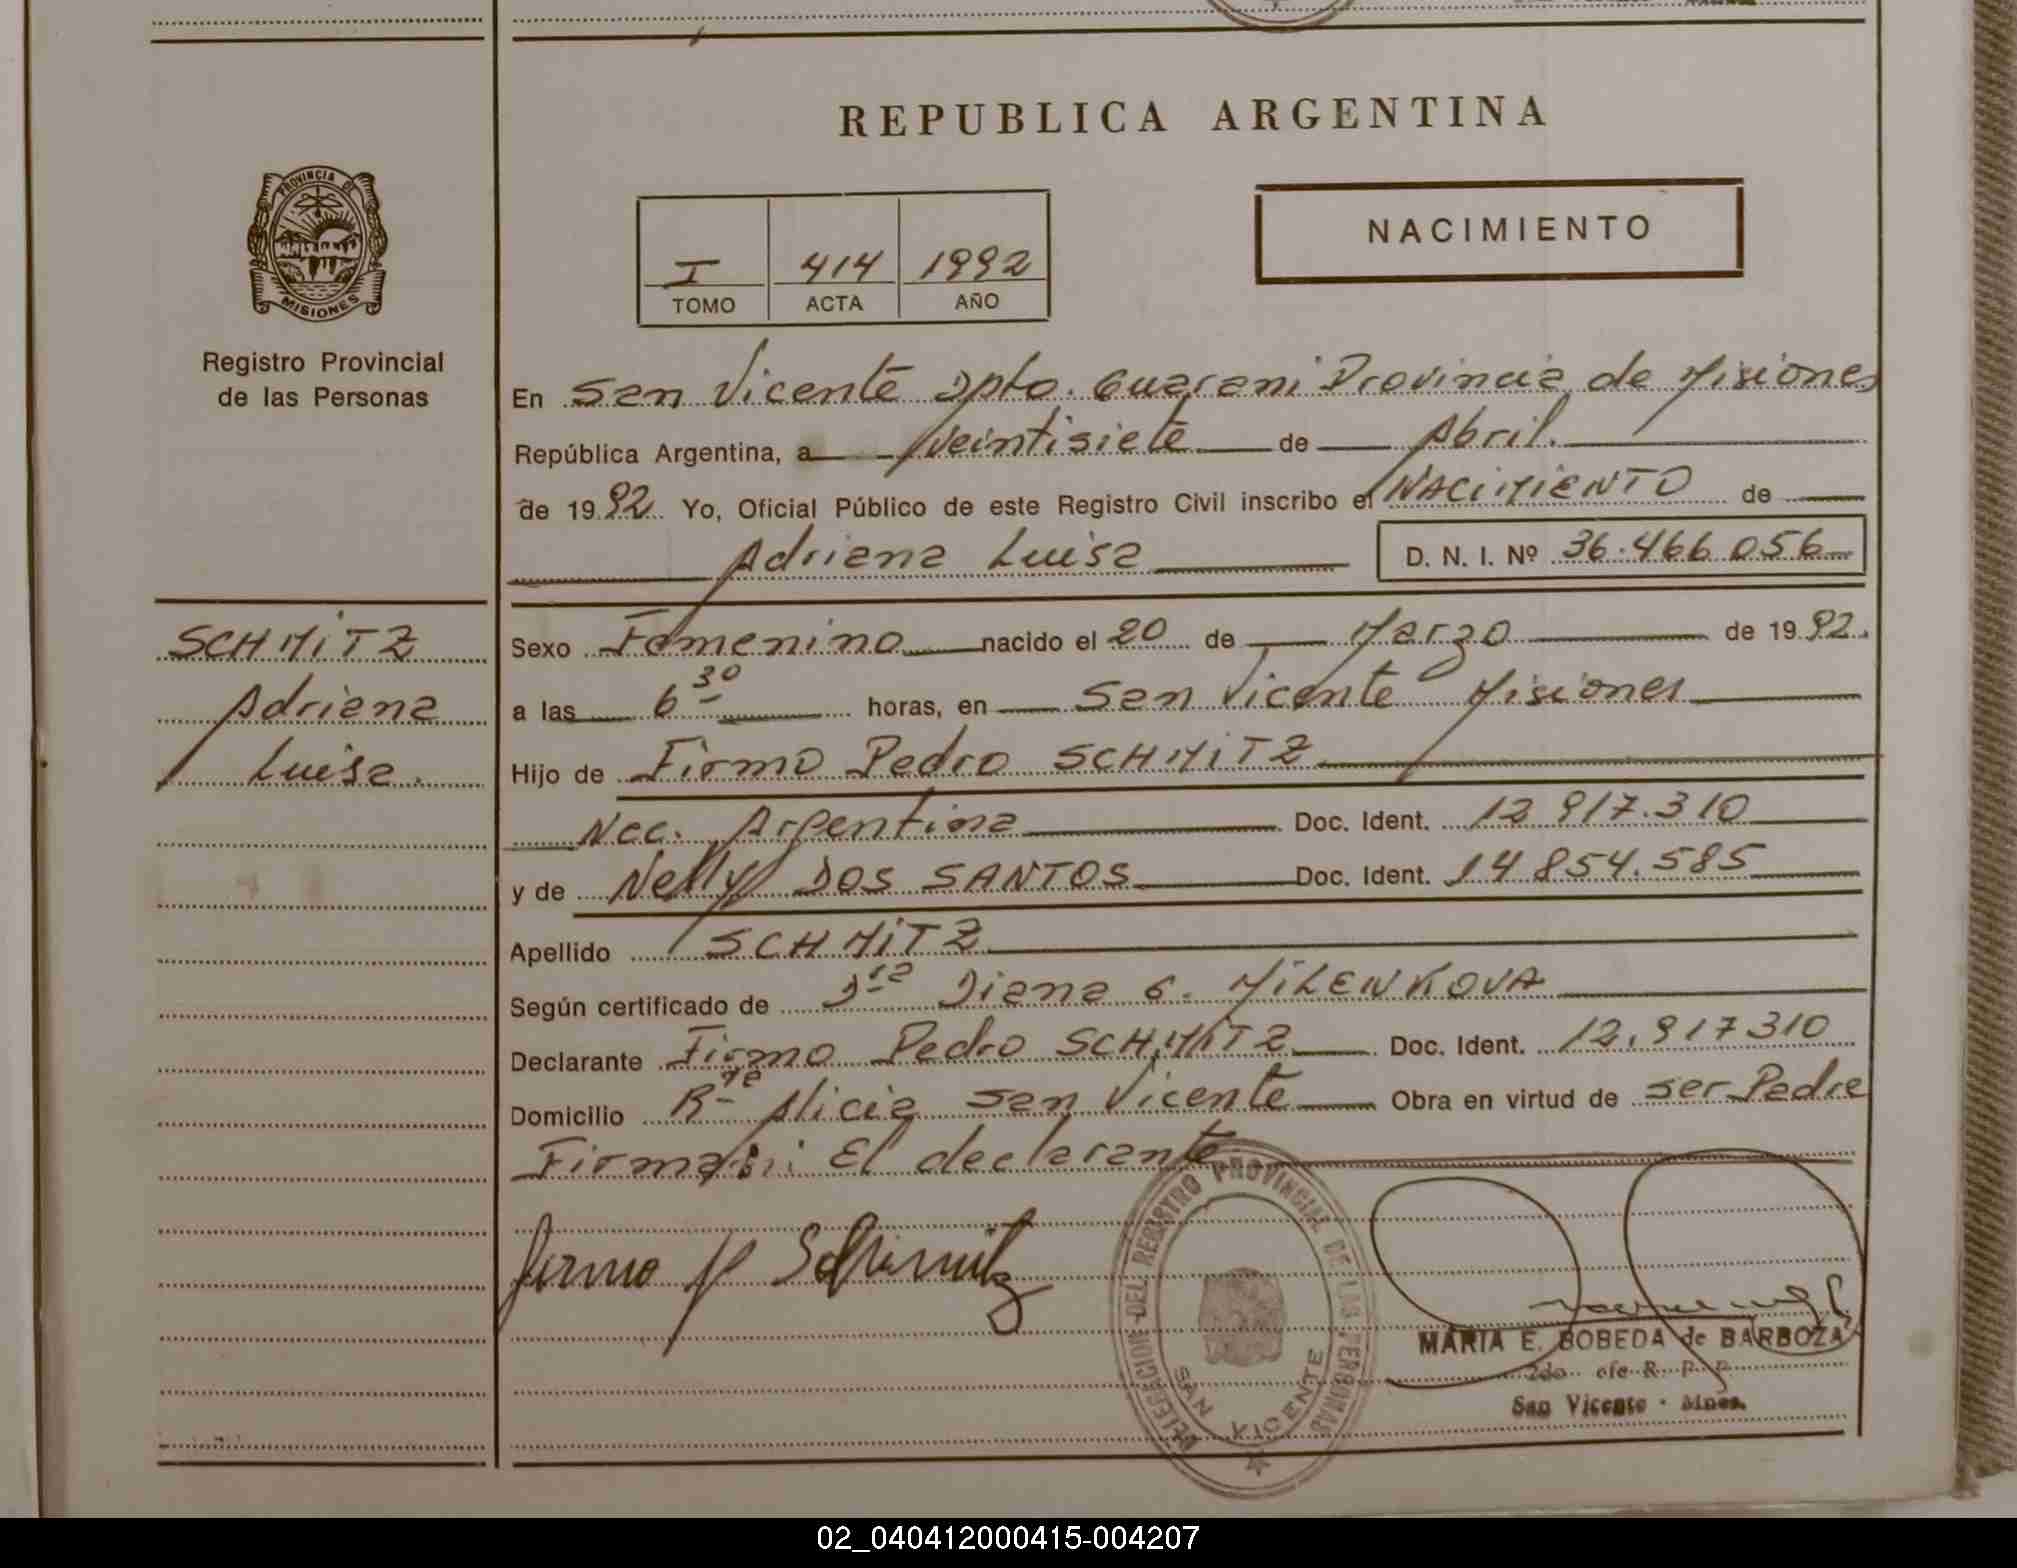 REPUBLICA ARGENTINA
PROVINCIA DE
MISIONES
Registro Provincial
de las Personas
NACIMIENTO
I 414 1992
TOMO ACTA AÑO
En San Vicente Dpto. Guarani Provincia de Misiones
República Argentina, a veintisiete de Abril.
de 1992 Yo, Oficial Público de este Registro Civil inscribo el NACIMIENTO de
Adriana Luisa D. N. I. Nº 36.466.056
SCHMITZ
Adriana
Luisa.
Sexo Femenino nacido el 20 de Marzo de 1992.
a las 6 30 horas, en San Vicente Misiones
Hijo de Firmo Pedro SCHMITZ
Nac. Argentina Doc. Ident. 12.917.310
y de Nelly DOS SANTOS Doc. Ident. 14.854.585
Apellido SCHMITZ
Según certificado de Dra Diana G. MILENKOVA
Declarante Firmo Pedro SCHMITZ Doc. Ident. 12.917310
Domicilio Alicia San Vicente Obra en virtud de ser Padre
El declarante
Firmo P Schmitz
DELEGACION DEL REGISTRO PROVINCIAL DE LAS PERSONAS
SAN VICENTE
MARIA E. BOBEDA de BARBOZA
2do ofc R. P. P.
San Vicente - Mnes.
02_040412000415-004207